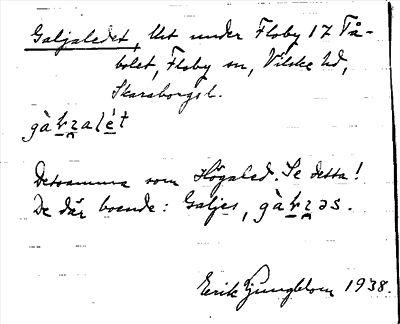 Galjaledet, Ust under Floby 17 Få-
bolet, Floby sn, Vilske hd,
Skaraborgs l.
gàʀ̥ʐalét
Detsamma som Högaled. Se detta!
De där boende: Galjes,
Erik Ljungblom 1938.